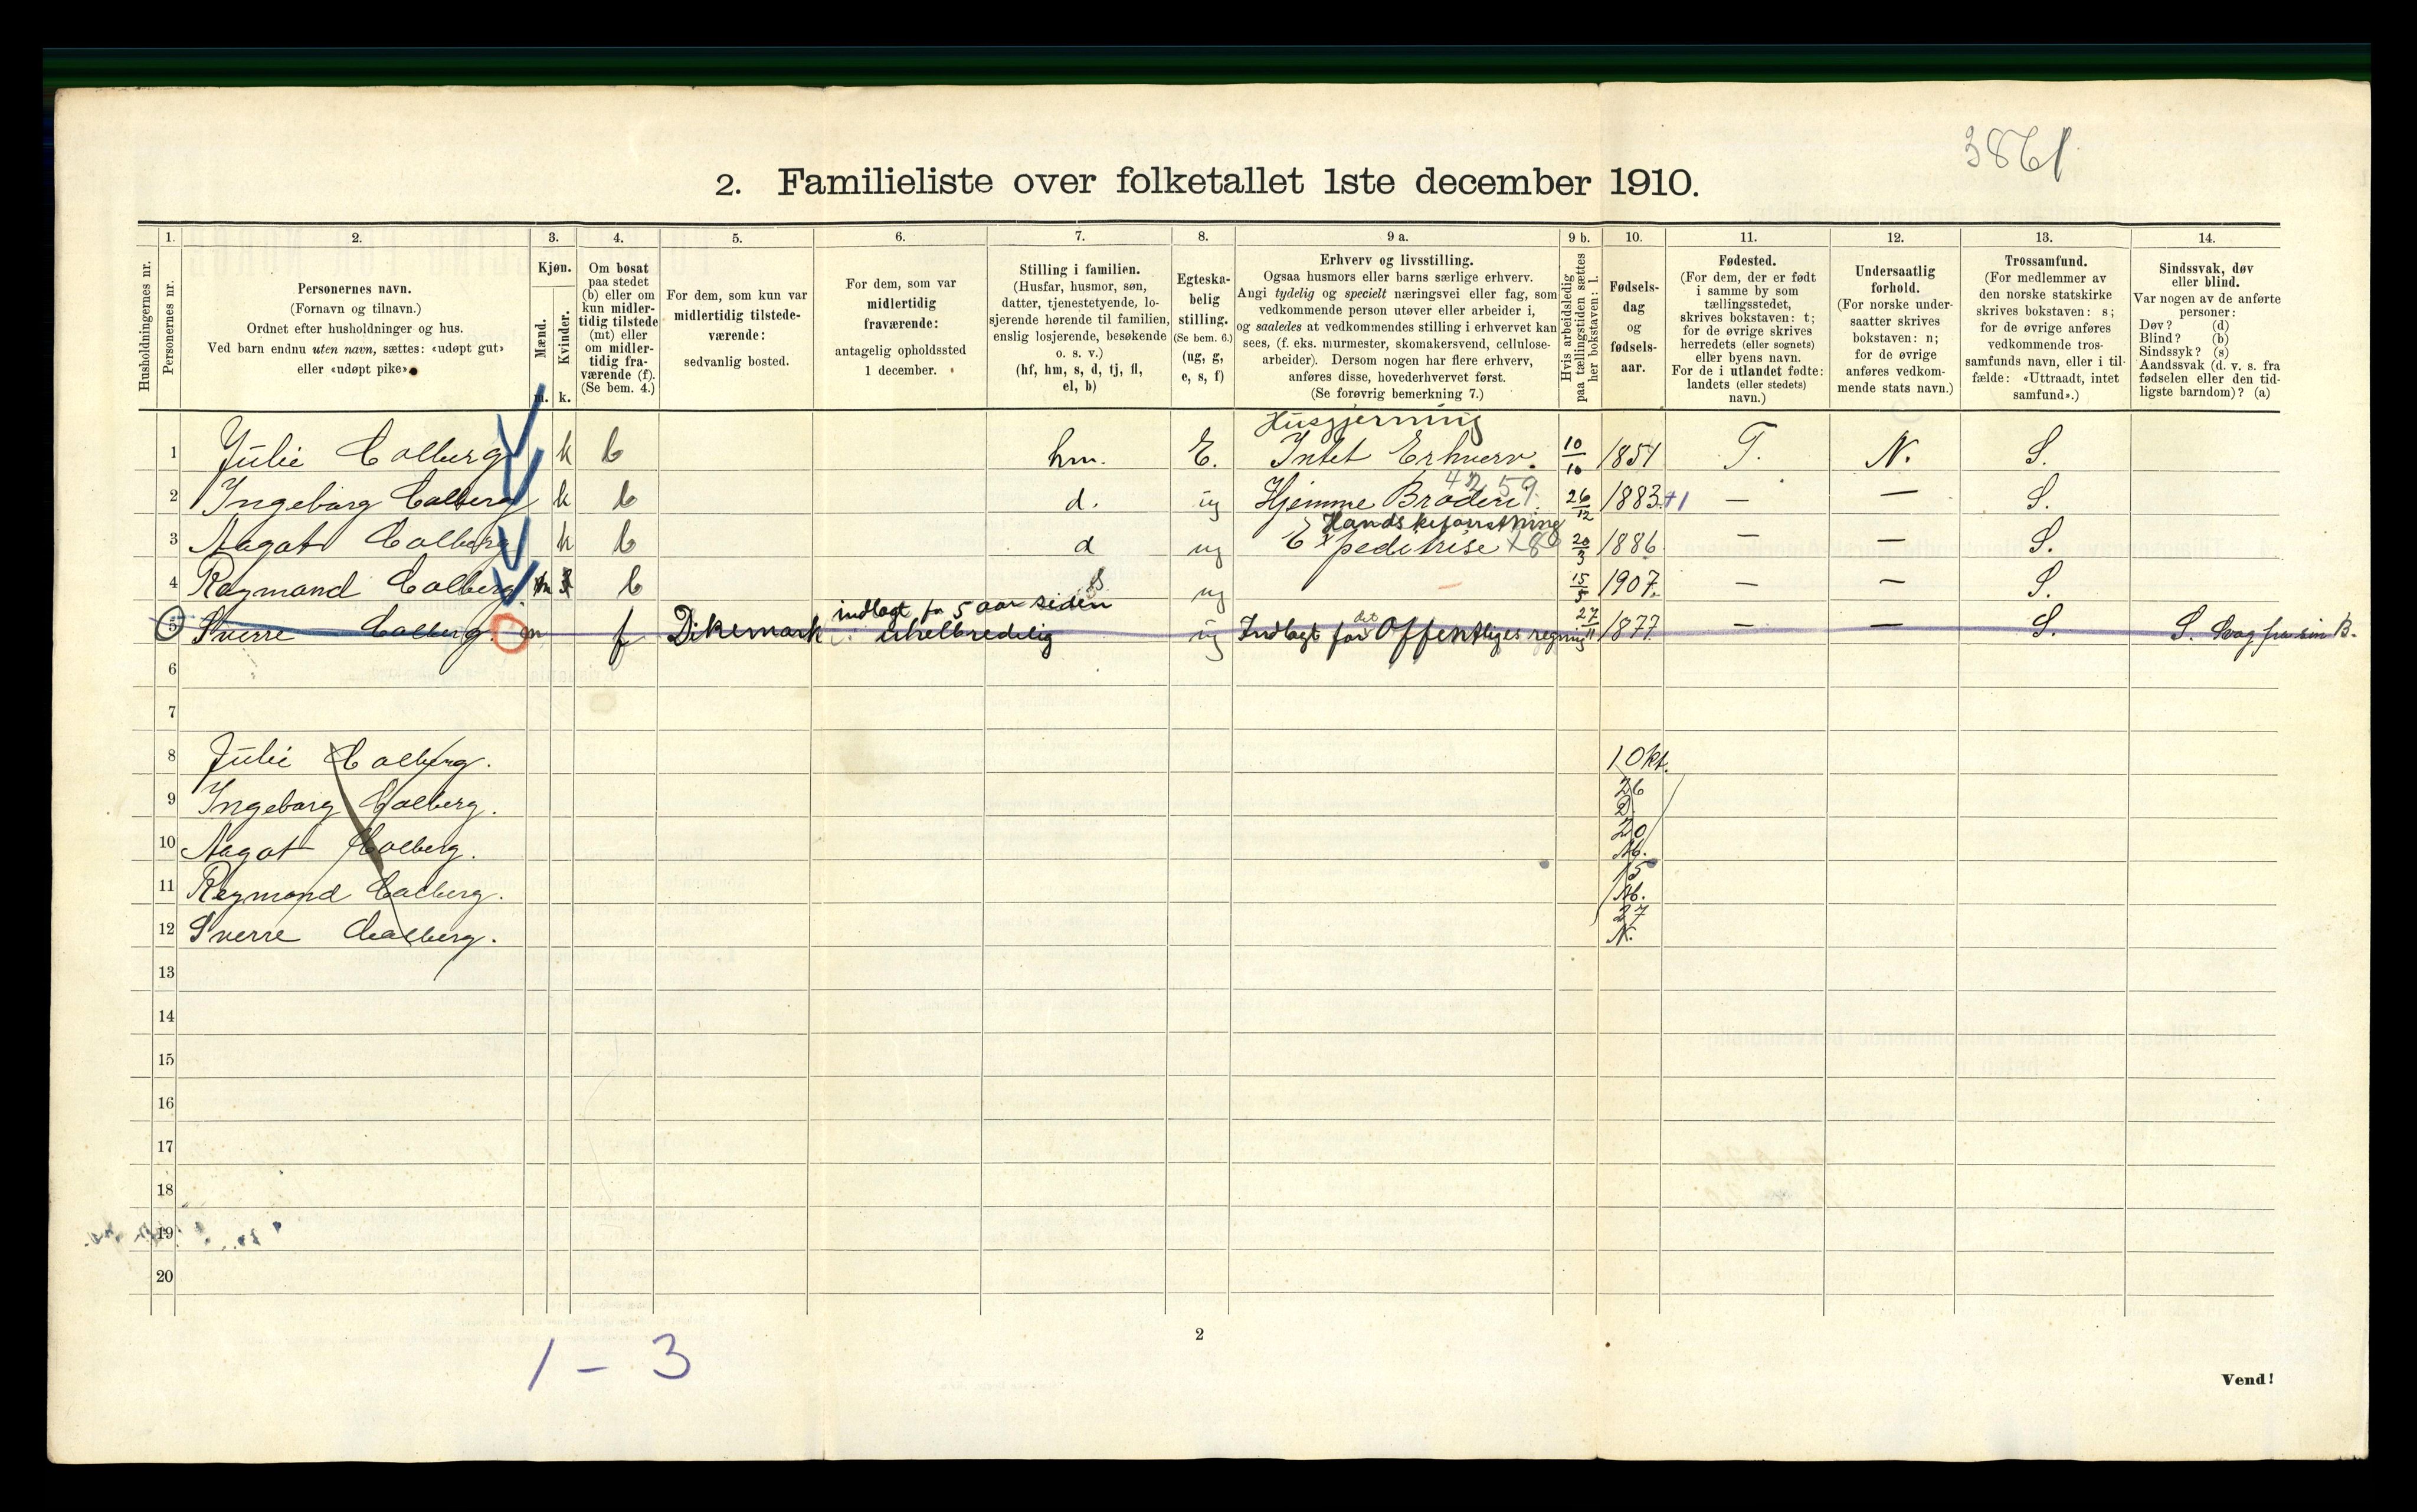 3861
2. Familieliste over folketallet 1ste december 1910.
Husholdningernes nr.
1.
Personernes nr.
2.
Personernes navn.
(Fornavn og tilnavn.)
Ordnet efter husholdninger og hus.
Ved barn endnu uten navn, sættes: «udøpt gut»
eller «udøpt pike».
3.
Kjøn.
Mænd.
Kvinder.
m. k.
4.
Om bosat
paa stedet
(b) eller om
kun midler-
tidig tilstede
(mt) eller
om midler-
tidig fra-
værende (f).
(Se bem. 4.)
5.
For dem, som kun var
midlertidig tilstede-
værende:
sedvanlig bosted.
6.
For dem, som var
midlertidig
fraværende:
antagelig opholdssted
1 december.
7.
Stilling i familien.
(Husfar, husmor, søn,
datter, tjenestetyende, lo-
sjerende hørende til familien,
enslig losjerende, besøkende
o. s. v.)
(hf, hm, s, d, tj, fl,
el, b)
8.
Egteska-
belig
stilling.
(Se bem. 6.)
(ug, g,
e, s, f)
9 a.
Erhverv og livsstilling.
Ogsaa husmors eller barns særlige erhverv.
Angi tydelig og specielt næringsvei eller fag, som
vedkommende person utøver eller arbeider i,
og saaledes at vedkommendes stilling i erhvervet kan
sees, (f. eks. murmester, skomakersvend, cellulose-
arbeider). Dersom nogen har flere erhverv,
anføres disse, hovederhvervet først.
(Se forøvrig bemerkning 7.)
9 b.
Hvis arbeidsledig
paa tællingstiden sættes
her bokstaven: l.
10.
Fødsels-
dag
og
fødsels-
aar.
11.
Fødested.
(For dem, der er født
i samme by som
tællingsstedet,
skrives bokstaven: t;
for de øvrige skrives
herredets (eller sognets)
eller byens navn.
For de i utlandet fødte:
landets (eller stedets)
navn.)
12.
Undersaatlig
forhold.
(For norske under-
saatter skrives
bokstaven: n;
for de øvrige
anføres vedkom-
mende stats navn.)
13.
Trossamfund.
(For medlemmer av
den norske statskirke
skrives bokstaven: s;
for de øvrige anføres
vedkommende tros-
samfunds navn, eller i til-
fælde: «Uttraadt, intet
samfund».)
14.
Sindssvak, døv
eller blind.
Var nogen av de anførte
personer:
Døv? (d)
Blind? (b)
Sindssyk? (s)
Aandssvak (d. v. s. fra
fødselen eller den tid-
ligste barndom)? (a)
Husgjerning
1 Julie Colberg k b hm. E. Intet Erhverv. 10/10 1851 T. N. S.
2 Ingeborg Colberg k b d. ug Hjemme Broderi 59 26/12 1883 +1 — — S.
Handskeforretning
3 Aagot Colberg k b d ug Expeditrise 20/3 1886 — — S.
4 Raymond Colberg m b ug 15/5 1907. — — S.
indlagt for 5 aar siden
5 Sverre Colberg. m f Dikemark uhelbredelig ug Indlagt for det Offentliges regning 27/11 1877. — — S. S. Svag fra sin B.
6
7
8 Julie Colberg. 10 kt.
9 Ingeborg Colberg. 26 D
10 Aagot Colberg. 20 M.
11 Reymond Colberg. 15 M.
12 Sverre Colberg. 27 N.
13
14
15
16
17
18
19
20
2
1 – 3
Vend!